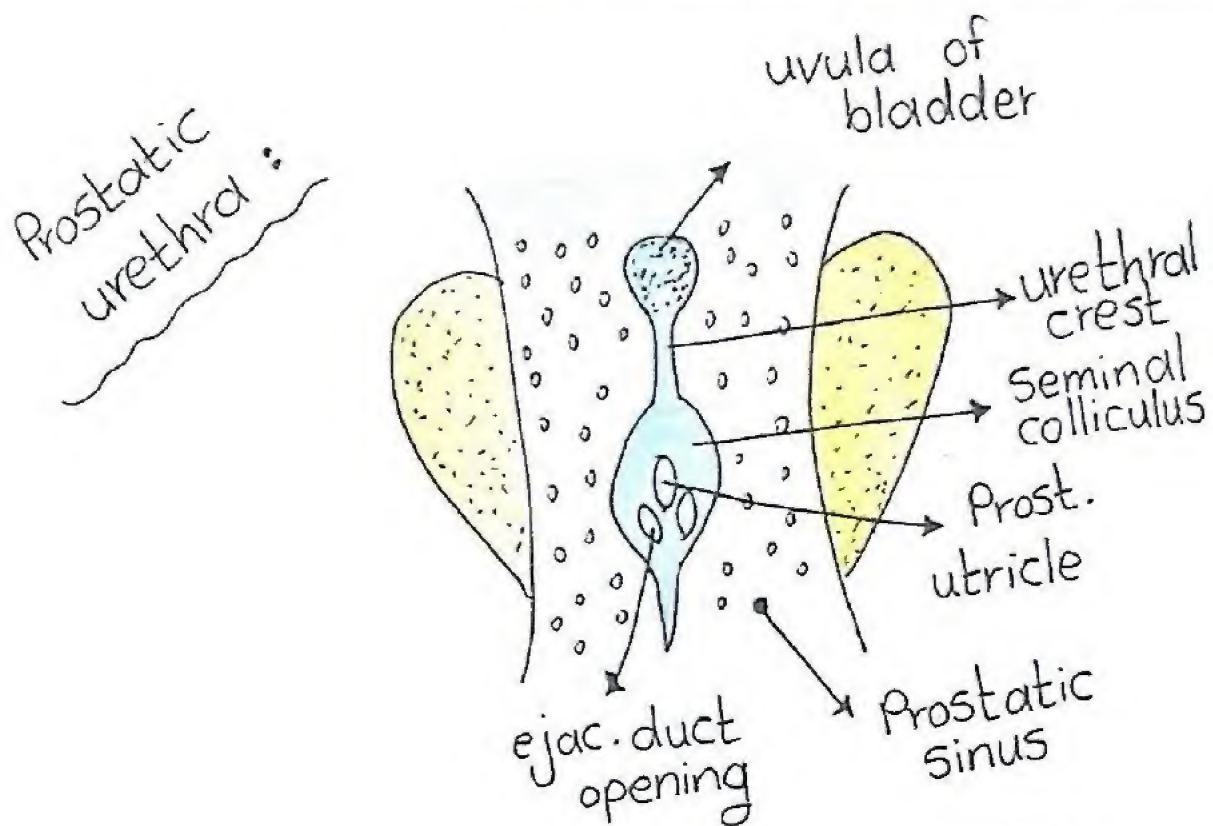 Prostatic
urethra :
uvula of
bladder
urethral
crest
seminal
colliculus
Prost.
utricle
Prostatic
sinus
ejac. duct
opening